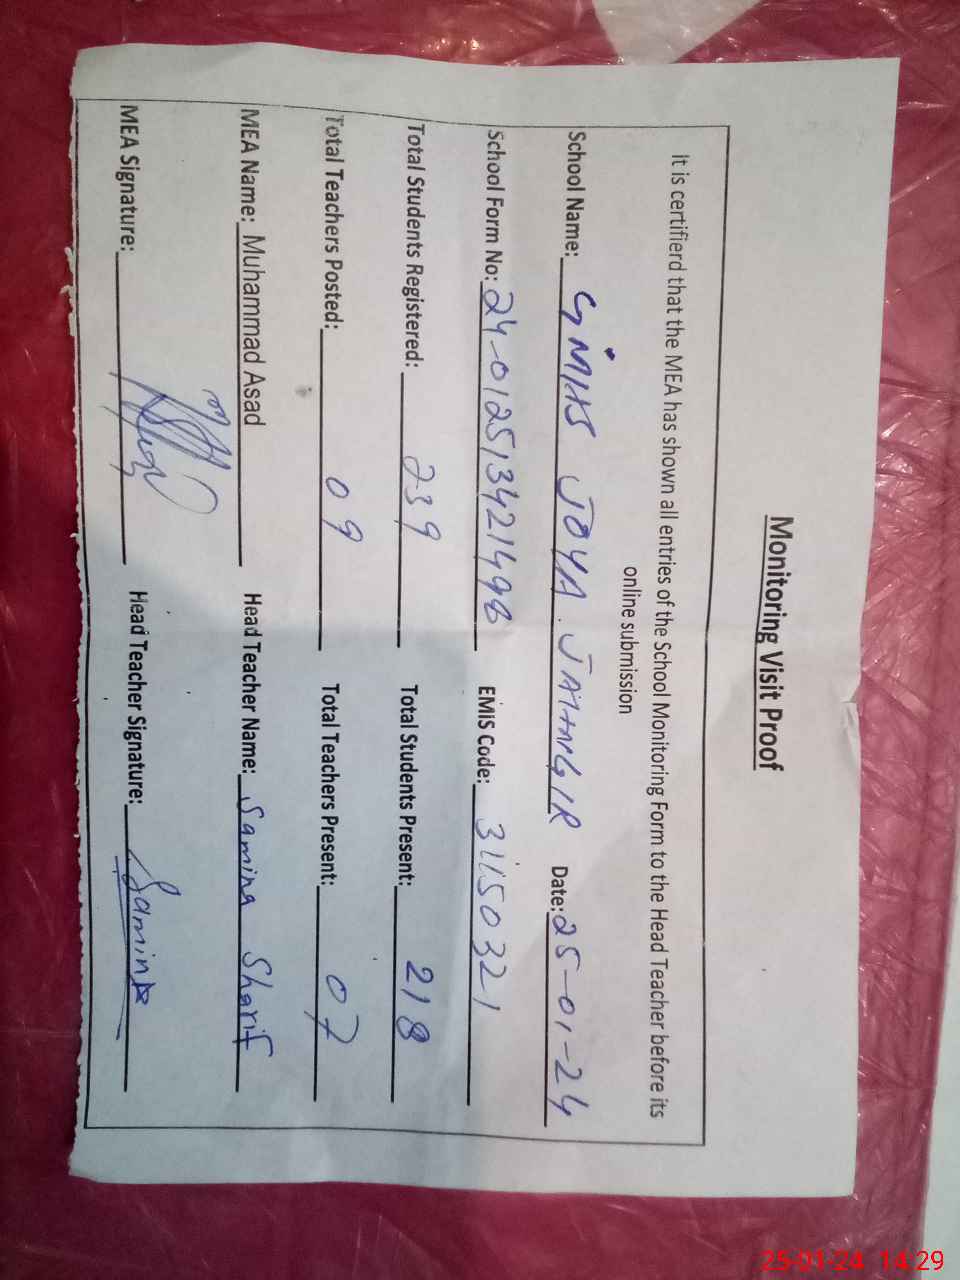 Monitoring Visit Proof
It is certifierd that the MEA has shown all entries of the School Monitoring Form to the Head Teacher before its
online submission
School Name: GMHS JOYA. JAHNGIR Date: 25-01-24
School Form No: 24-012513421498 EMIS Code: 31150321
Total Students Registered: 239 Total Students Present: 218
Total Teachers Posted: 09 Total Teachers Present: 07
MEA Name: Muhammad Asad Head Teacher Name: Samina Sharif
MEA Signature: Head Teacher Signature: Samina
25-01-24 14:29